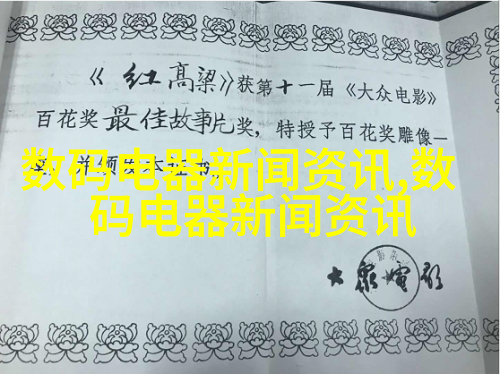 《红高粱》获第十一届《大众电影》
百花奖最佳故事片奖，特授予百花奖雕像一
数码电器新闻资讯,数
码电器新闻资讯
大众电影